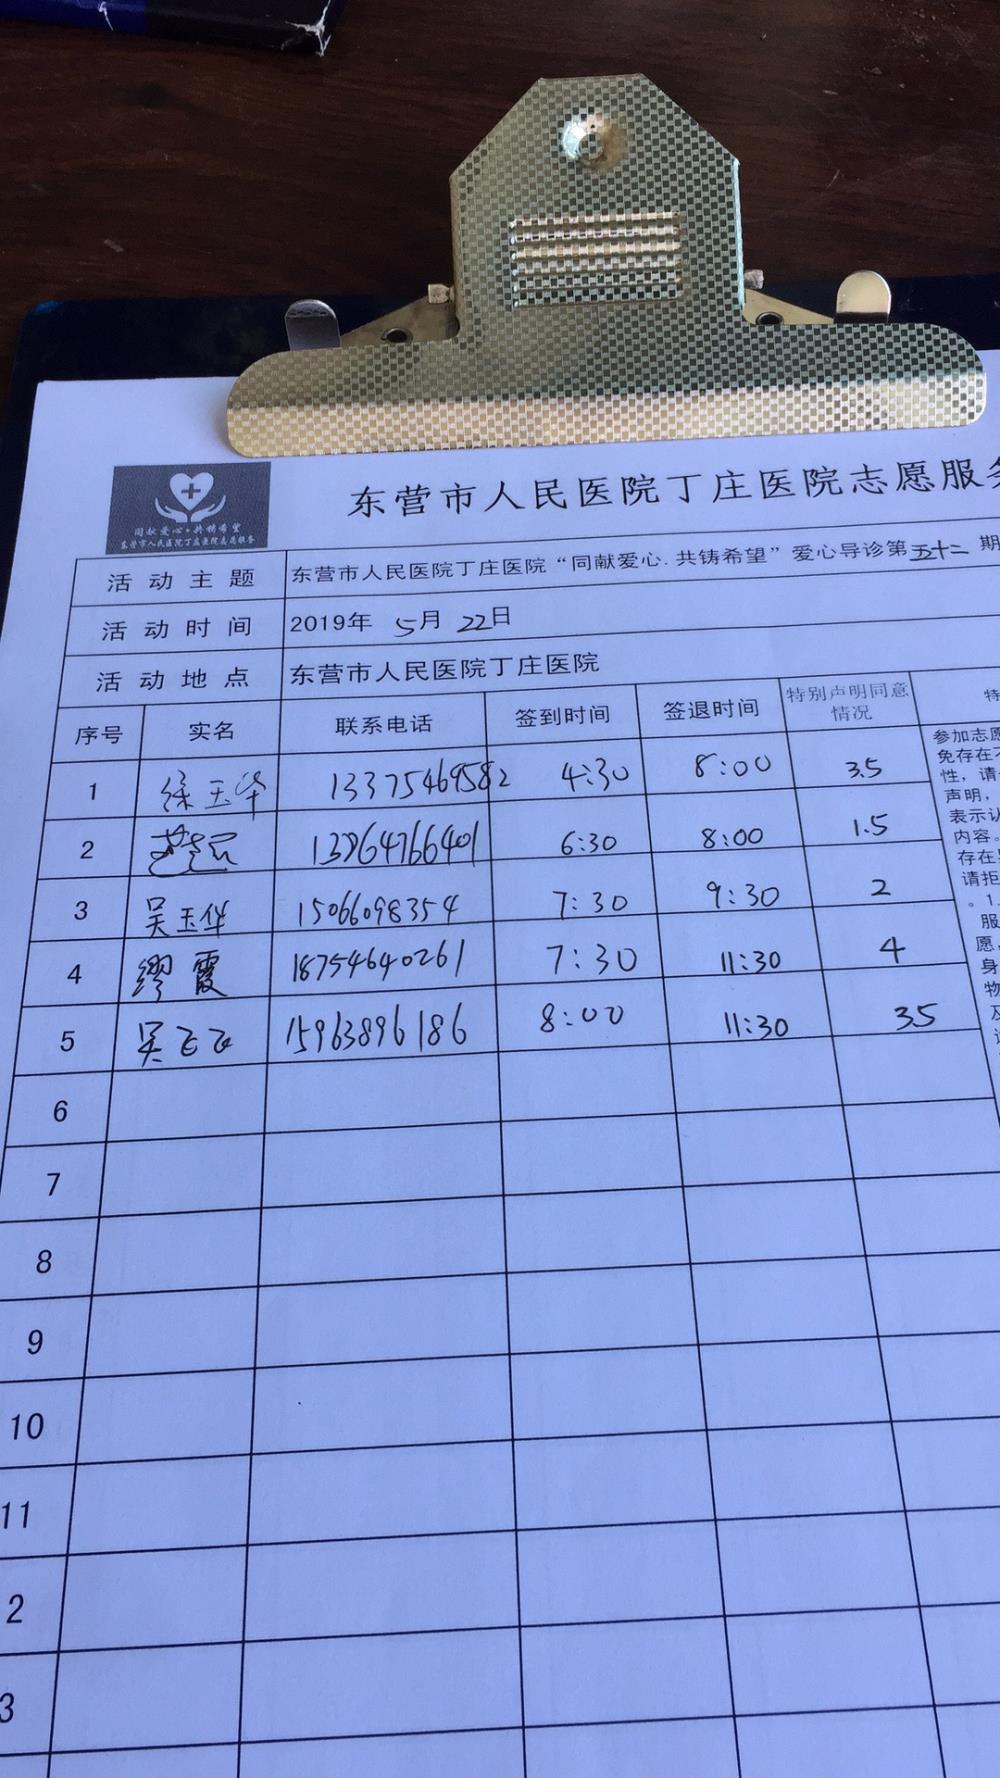 同献爱心·共铸希望
东营市人民医院丁庄医院志愿服务
东营市人民医院丁庄医院志愿服务
活动主题 东营市人民医院丁庄医院“同献爱心.共铸希望”爱心导诊第五十二期
活动时间 2019年 5月 22日
活动地点 东营市人民医院丁庄医院
序号 实名 联系电话 签到时间 签退时间 特别声明同意情况 特
1 徐玉华 13375469582 4:30 8:00 3.5
2 13764766401 6:30 8:00 1.5
3 吴玉华 15066098354 7:30 9:30 2
4 缪霞 18754640261 7:30 11:30 4
5 吴飞飞 15963896186 8:00 11:30 35
参加志愿
免存在不
性，请
声明，
表示认
内容。
存在
请拒
。1.
服
愿，
身
物
及
6
7
8
9
10
11
2
3